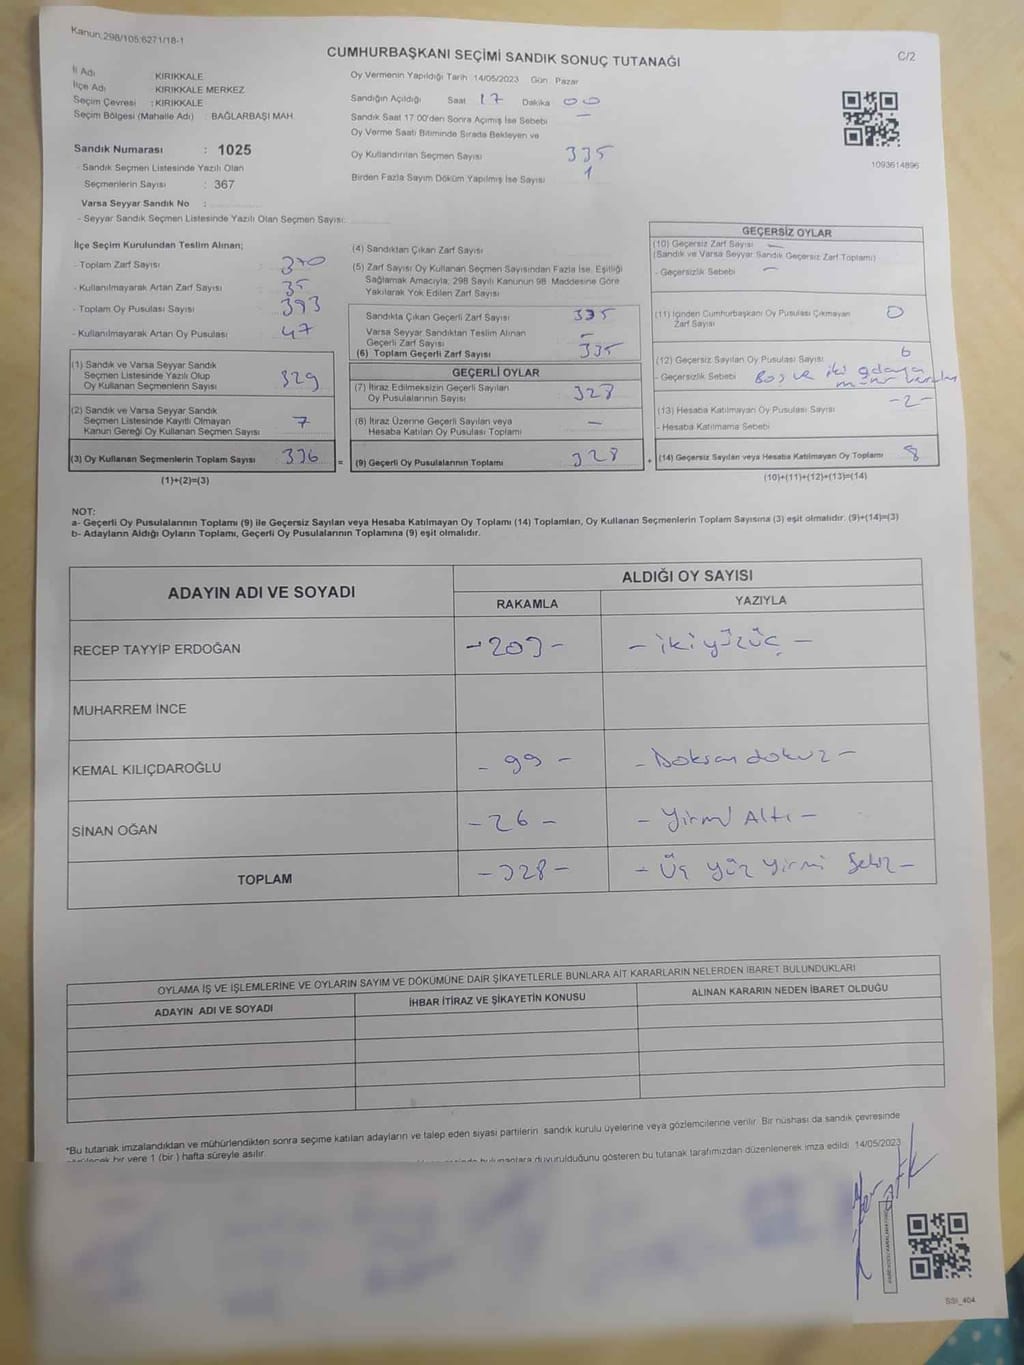 Kanun:298/105:6271/18-1
CUMHURBAŞKANI SEÇİMİ SANDIK SONUÇ TUTANAĞI
C/2
İl Adı KIRIKKALE
İlçe Adı KIRIKKALE MERKEZ
Seçim Çevresi : KIRIKKALE
Seçim Bölgesi (Mahalle Adı) : BAĞLARBAŞI MAH.
Sandık Numarası : 1025
- Sandık Seçmen Listesinde Yazılı Olan
Seçmenlerin Sayısı : 367
Varsa Seyyar Sandık No :
- Seyyar Sandık Seçmen Listesinde Yazılı Olan Seçmen Sayısı:
Oy Vermenin Yapıldığı Tarih 14/05/2023 Gün Pazar
Sandığın Açıldığı Saat 17 Dakika 00
Sandık Saat 17.00'den Sonra Açımış İse Sebebi —
Oy Verme Saati Bitiminde Sırada Bekleyen ve
Oy Kullandırılan Seçmen Sayısı 335
Birden Fazla Sayım Döküm Yapılmış İse Sayısı 1
1093614896
İlçe Seçim Kurulundan Teslim Alınan;
- Toplam Zarf Sayısı 370
- Kullanılmayarak Artan Zarf Sayısı 35
- Toplam Oy Pusulası Sayısı 393
- Kullanılmayarak Artan Oy Pusulası 47
(1) Sandık ve Varsa Seyyar Sandık
Seçmen Listesinde Yazılı Olup
Oy Kullanan Seçmenlerin Sayısı 329
(2) Sandık ve Varsa Seyyar Sandık
Seçmen Listesinde Kayıtlı Olmayan
Kanun Gereği Oy Kullanan Seçmen Sayısı 7
(3) Oy Kullanan Seçmenlerin Toplam Sayısı 336 =
(1)+(2)=(3)
(4) Sandıktan Çıkan Zarf Sayısı
(5) Zarf Sayısı Oy Kullanan Seçmen Sayısından Fazla İse, Eşitliği
Sağlamak Amacıyla; 298 Sayılı Kanunun 98. Maddesine Göre
Yakılarak Yok Edilen Zarf Sayısı
Sandıkta Çıkan Geçerli Zarf Sayısı 335
Varsa Seyyar Sandıktan Teslim Alınan
Geçerli Zarf Sayısı —
(6) Toplam Geçerli Zarf Sayısı 335
GEÇERLİ OYLAR
(7) İtiraz Edilmeksizin Geçerli Sayılan
Oy Pusulalarının Sayısı 328
(8) İtiraz Üzerine Geçerli Sayılan veya
Hesaba Katılan Oy Pusulası Toplamı —
(9) Geçerli Oy Pusulalarının Toplamı 328 +
GEÇERSİZ OYLAR
(10) Geçersiz Zarf Sayısı —
(Sandık ve Varsa Seyyar Sandık Geçersiz Zarf Toplamı)
- Geçersizlik Sebebi —
(11) İçinden Cumhurbaşkanı Oy Pusulası Çıkmayan
Zarf Sayısı 0
(12) Geçersiz Sayılan Oy Pusulası Sayısı 6
- Geçersizlik Sebebi Boş ve iki adaya
(13) Hesaba Katılmayan Oy Pusulası Sayısı -2-
- Hesaba Katılmama Sebebi
(14) Geçersiz Sayılan veya Hesaba Katılmayan Oy Toplamı 8
(10)+(11)+(12)+(13)=(14)
NOT:
a- Geçerli Oy Pusulalarının Toplamı (9) ile Geçersiz Sayılan veya Hesaba Katılmayan Oy Toplamı (14) Toplamları, Oy Kullanan Seçmenlerin Toplam Sayısına (3) eşit olmalıdır. (9)+(14)=(3)
b- Adayların Aldığı Oyların Toplamı, Geçerli Oy Pusulalarının Toplamına (9) eşit olmalıdır.
ADAYIN ADI VE SOYADI
ALDIĞI OY SAYISI
RAKAMLA YAZIYLA
RECEP TAYYİP ERDOĞAN -203- - iki yüz üç -
MUHARREM İNCE
KEMAL KILIÇDAROĞLU - 99 - - Doksan dokuz -
SİNAN OĞAN - 26 - - Yirmi Altı -
TOPLAM - 328 - - Üç yüz yirmi sekiz -
OYLAMA İŞ VE İŞLEMLERİNE VE OYLARIN SAYIM VE DÖKÜMÜNE DAİR ŞİKAYETLERLE BUNLARA AİT KARARLARIN NELERDEN İBARET BULUNDUKLARI
ADAYIN ADI VE SOYADI İHBAR İTİRAZ VE ŞİKAYETİN KONUSU ALINAN KARARIN NEDEN İBARET OLDUĞU
*Bu tutanak imzalandıktan ve mühürlendikten sonra seçime katılan adayların ve talep eden siyasi partilerin sandık kurulu üyelerine veya gözlemcilerine verilir. Bir nüshası da sandık çevresinde
bir yere 1 (bir ) hafta süreyle asılır.
bulunanlara duyurulduğunu gösteren bu tutanak tarafımızdan düzenlenerek imza edildi. 14/05/2023
SSI_404